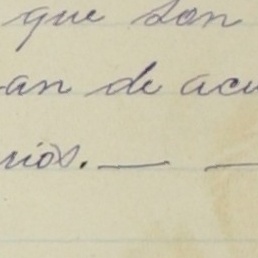 que son
an de acu
rios. — —